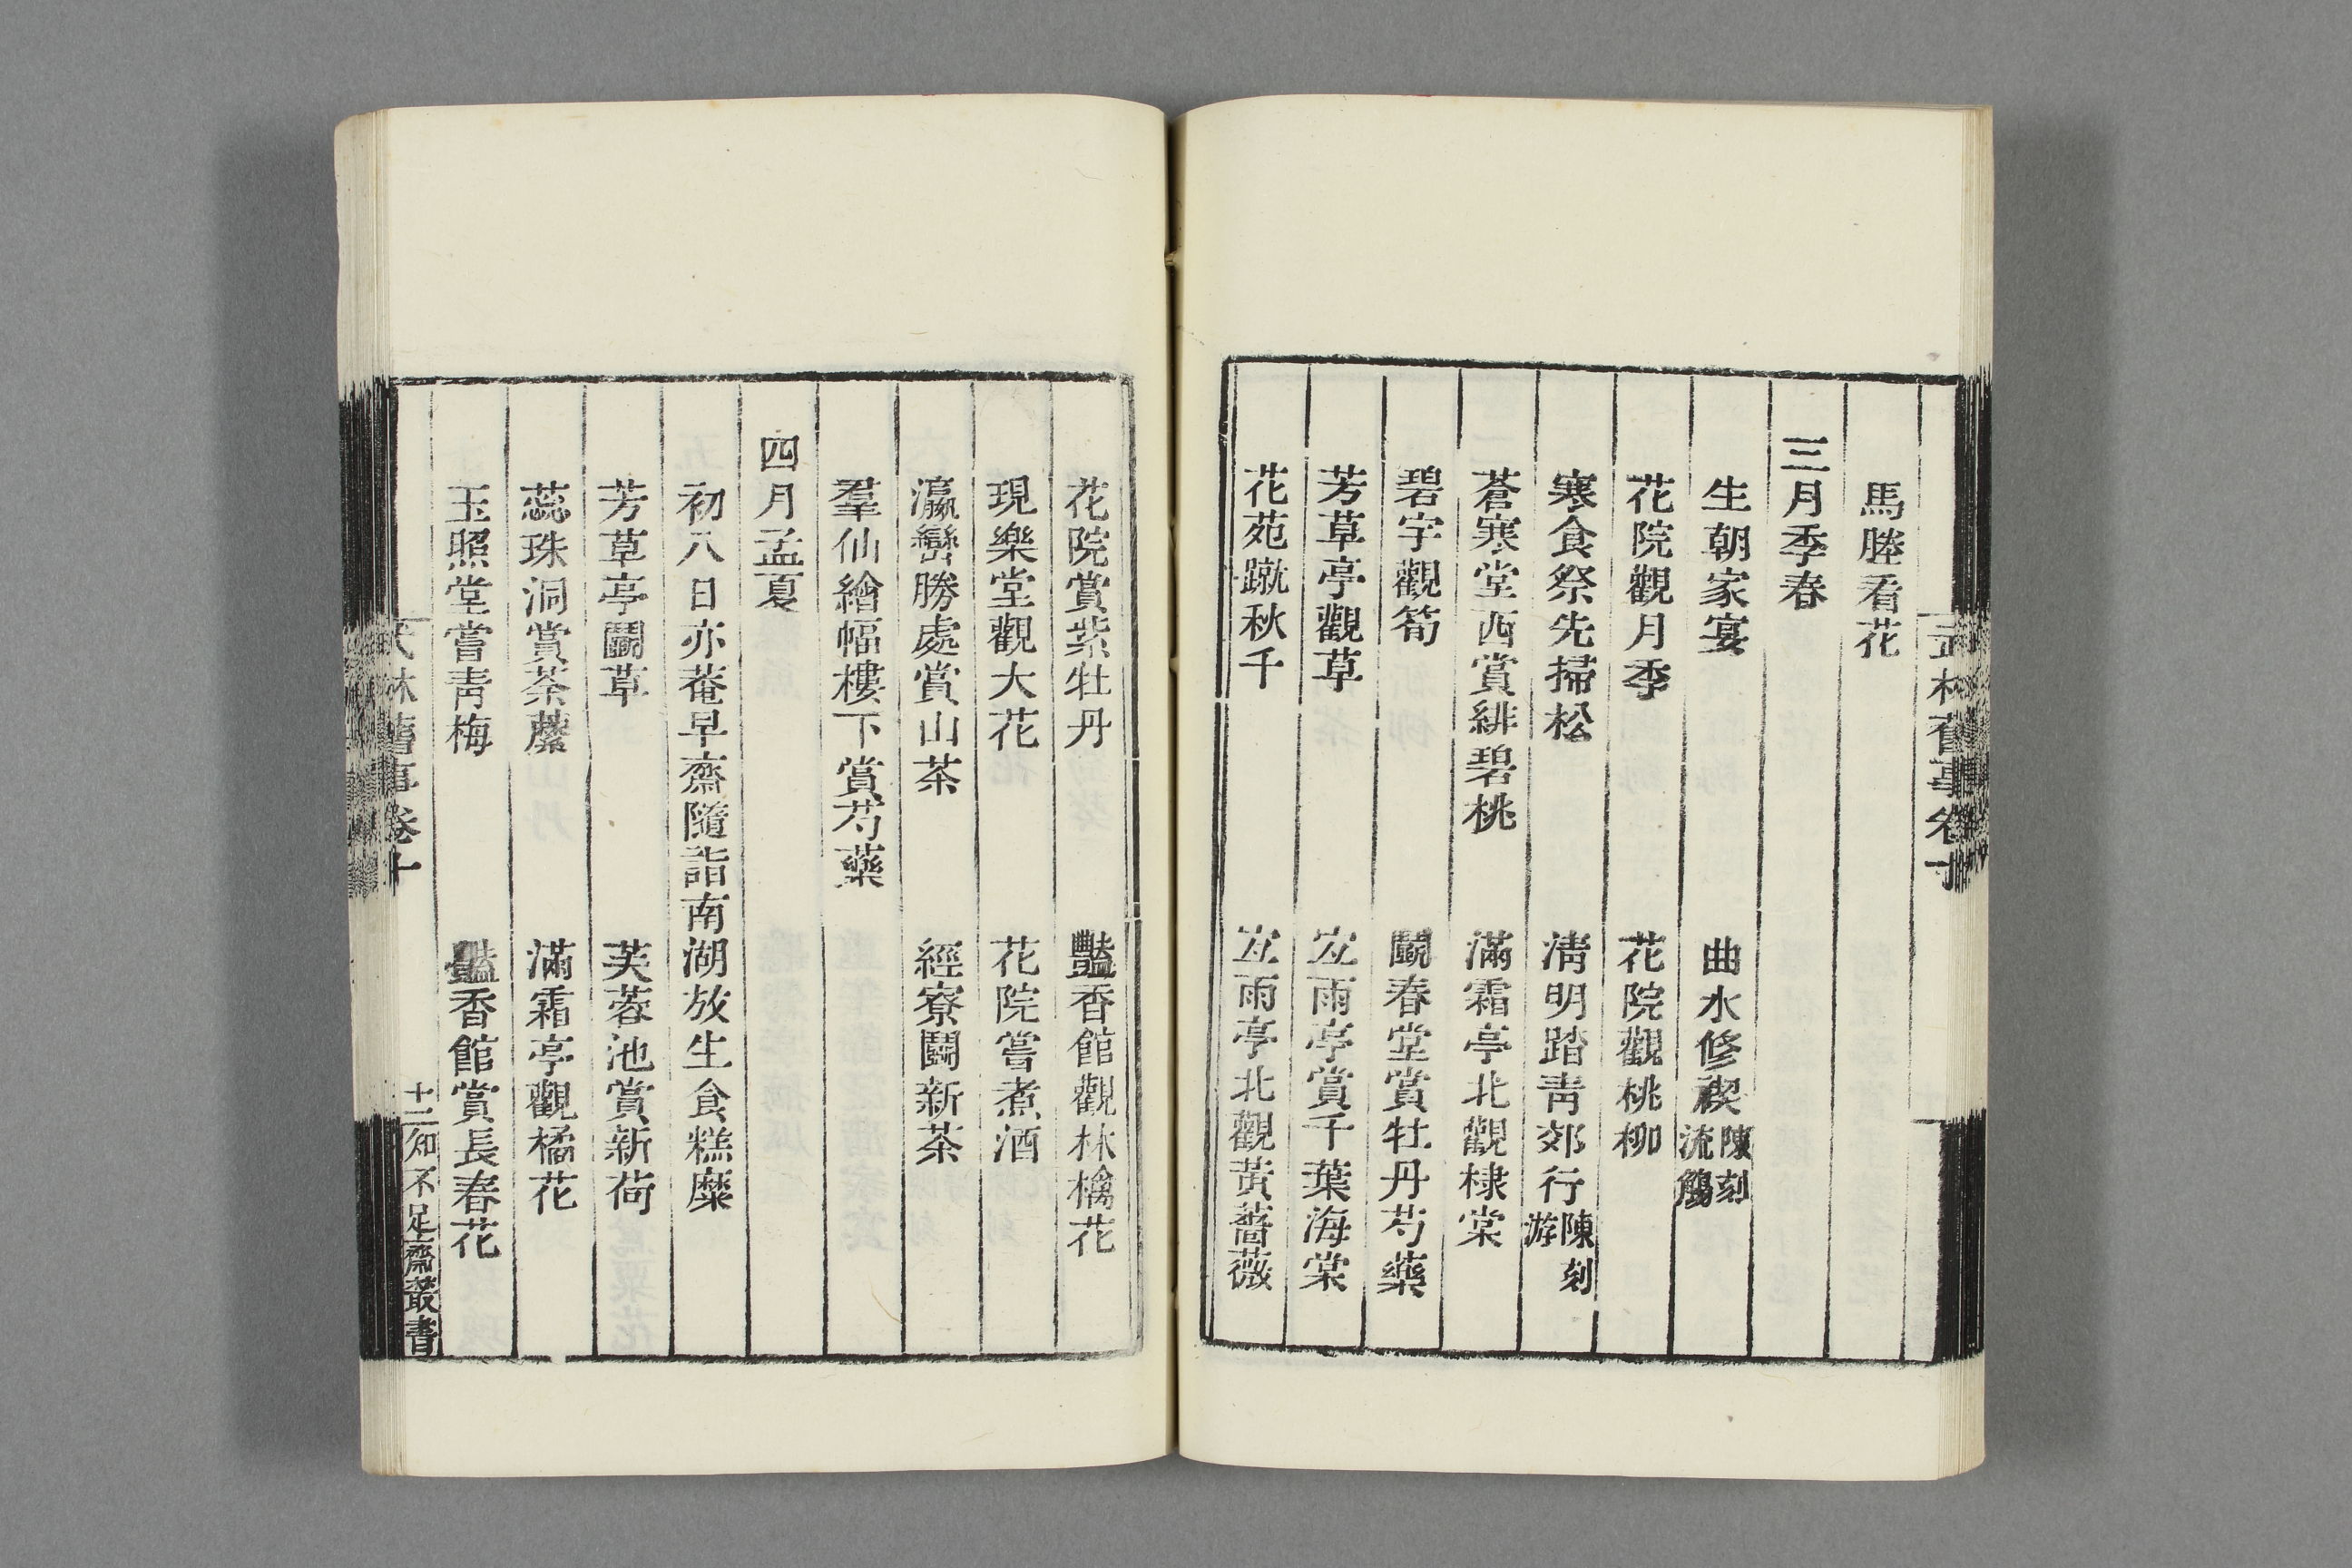 武林舊事卷十
馬塍看花
三月季春
生朝家宴　曲水修禊陳刻流觴
花院觀月季　花院觀桃柳
寒食祭先掃松　清明踏青郊行陳刻游
蒼寒堂西賞緋碧桃　滿霜亭北觀棣棠
碧宇觀筍　鬭春堂賞牡丹芍藥
芳草亭觀草　宜雨亭賞千葉海棠
花苑蹴秋千　宜雨亭北觀黃薔薇
花院賞紫牡丹　豔香館觀林檎花
現樂堂觀大花　花院嘗煮酒
瀛巒勝處賞山茶　經寮鬭新茶
羣仙繪幅樓下賞芍藥
四月孟夏
初八日亦菴早齋隨詣南湖放生食糕糜
芳草亭鬭草　芙蓉池賞新荷
蕊珠洞賞荼蘼　滿霜亭觀橘花
玉照堂嘗青梅　豔香館賞長春花
武林舊事卷十　十二　知不足齋叢書